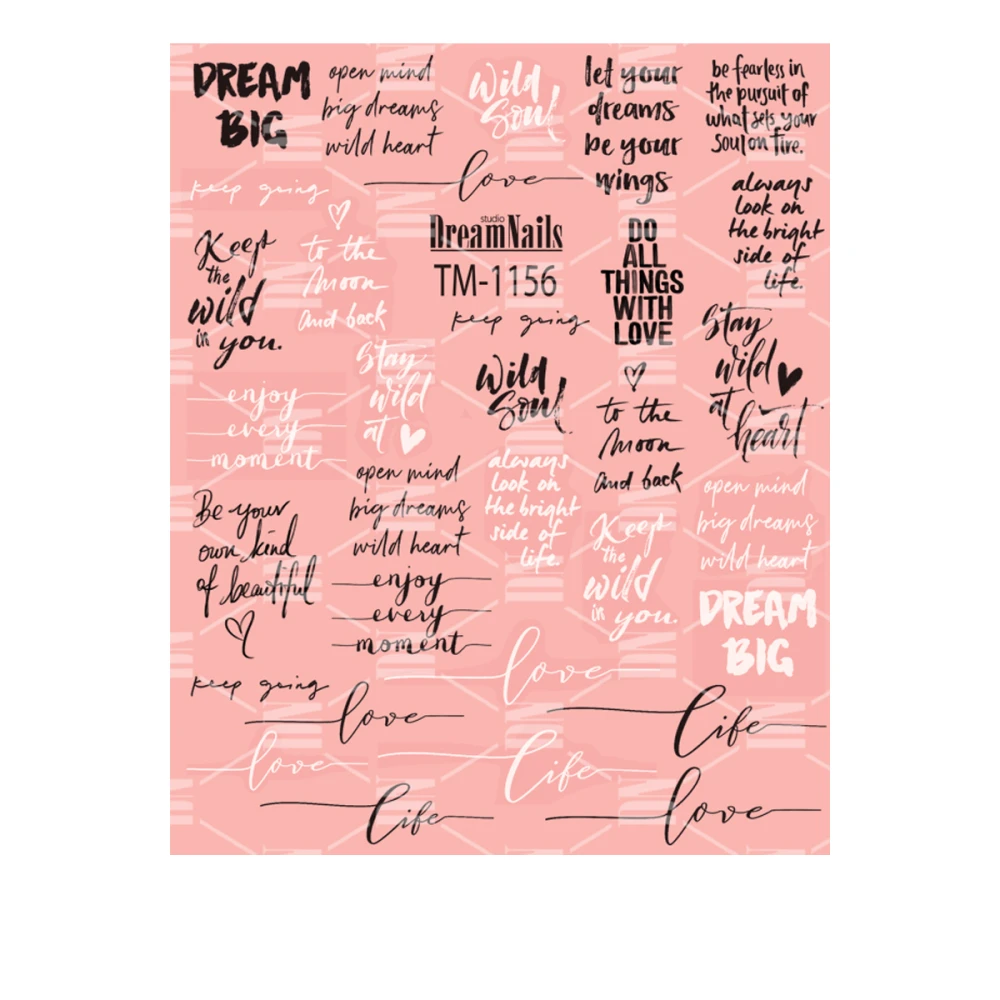 DREAM
BIG
open mind
big dreams
wild heart
Wild
Soul
let your
dreams
be your
wings
be fearless in
the pursuit of
what sets your
soul on fire.
love
keep going
always
look on
the bright
side of
life.
Keep
the
wild
in you.
to the
Moon
and back
studio
DreamNails
TM-1156
keep going
DO
ALL
THINGS
WITH
LOVE
Stay
wild
at
heart
Stay
wild
at
Wild
Soul
to the
Moon
and back
enjoy
every
moment
open mind
big dreams
wild heart
always
look on
the bright
side of
life.
open mind
big dreams
wild heart
Be your
own kind
of beautiful
Keep
the
wild
in you.
enjoy
every
moment
DREAM
BIG
love
keep going
love
Life
love
Life
Life
love